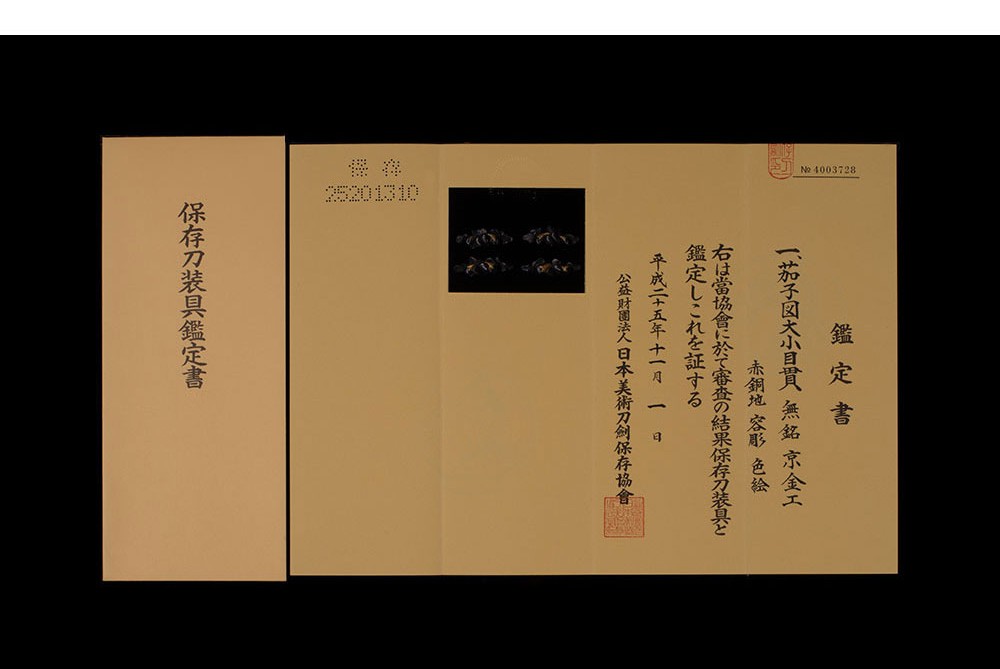 保存刀装具鑑定書
№ 4003728
鑑定書
一、茄子図大小目貫 無銘 京金工
赤銅地 容彫 色絵
右は當協會に於て審査の結果保存刀装具と
鑑定しこれを証する
平成二十五年十一月 一 日
公益財團法人 日本美術刀劍保存協會
保存
25201310